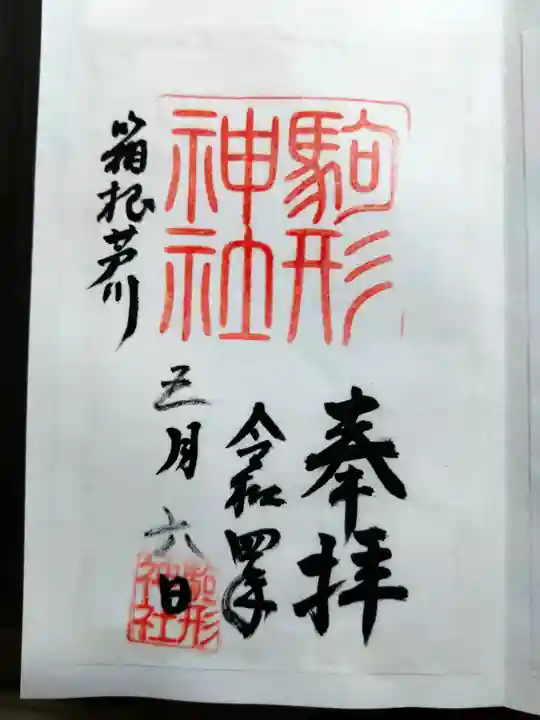 駒形
神社
奉拝
令和四年
五月六日
箱根芦川
駒形
神社